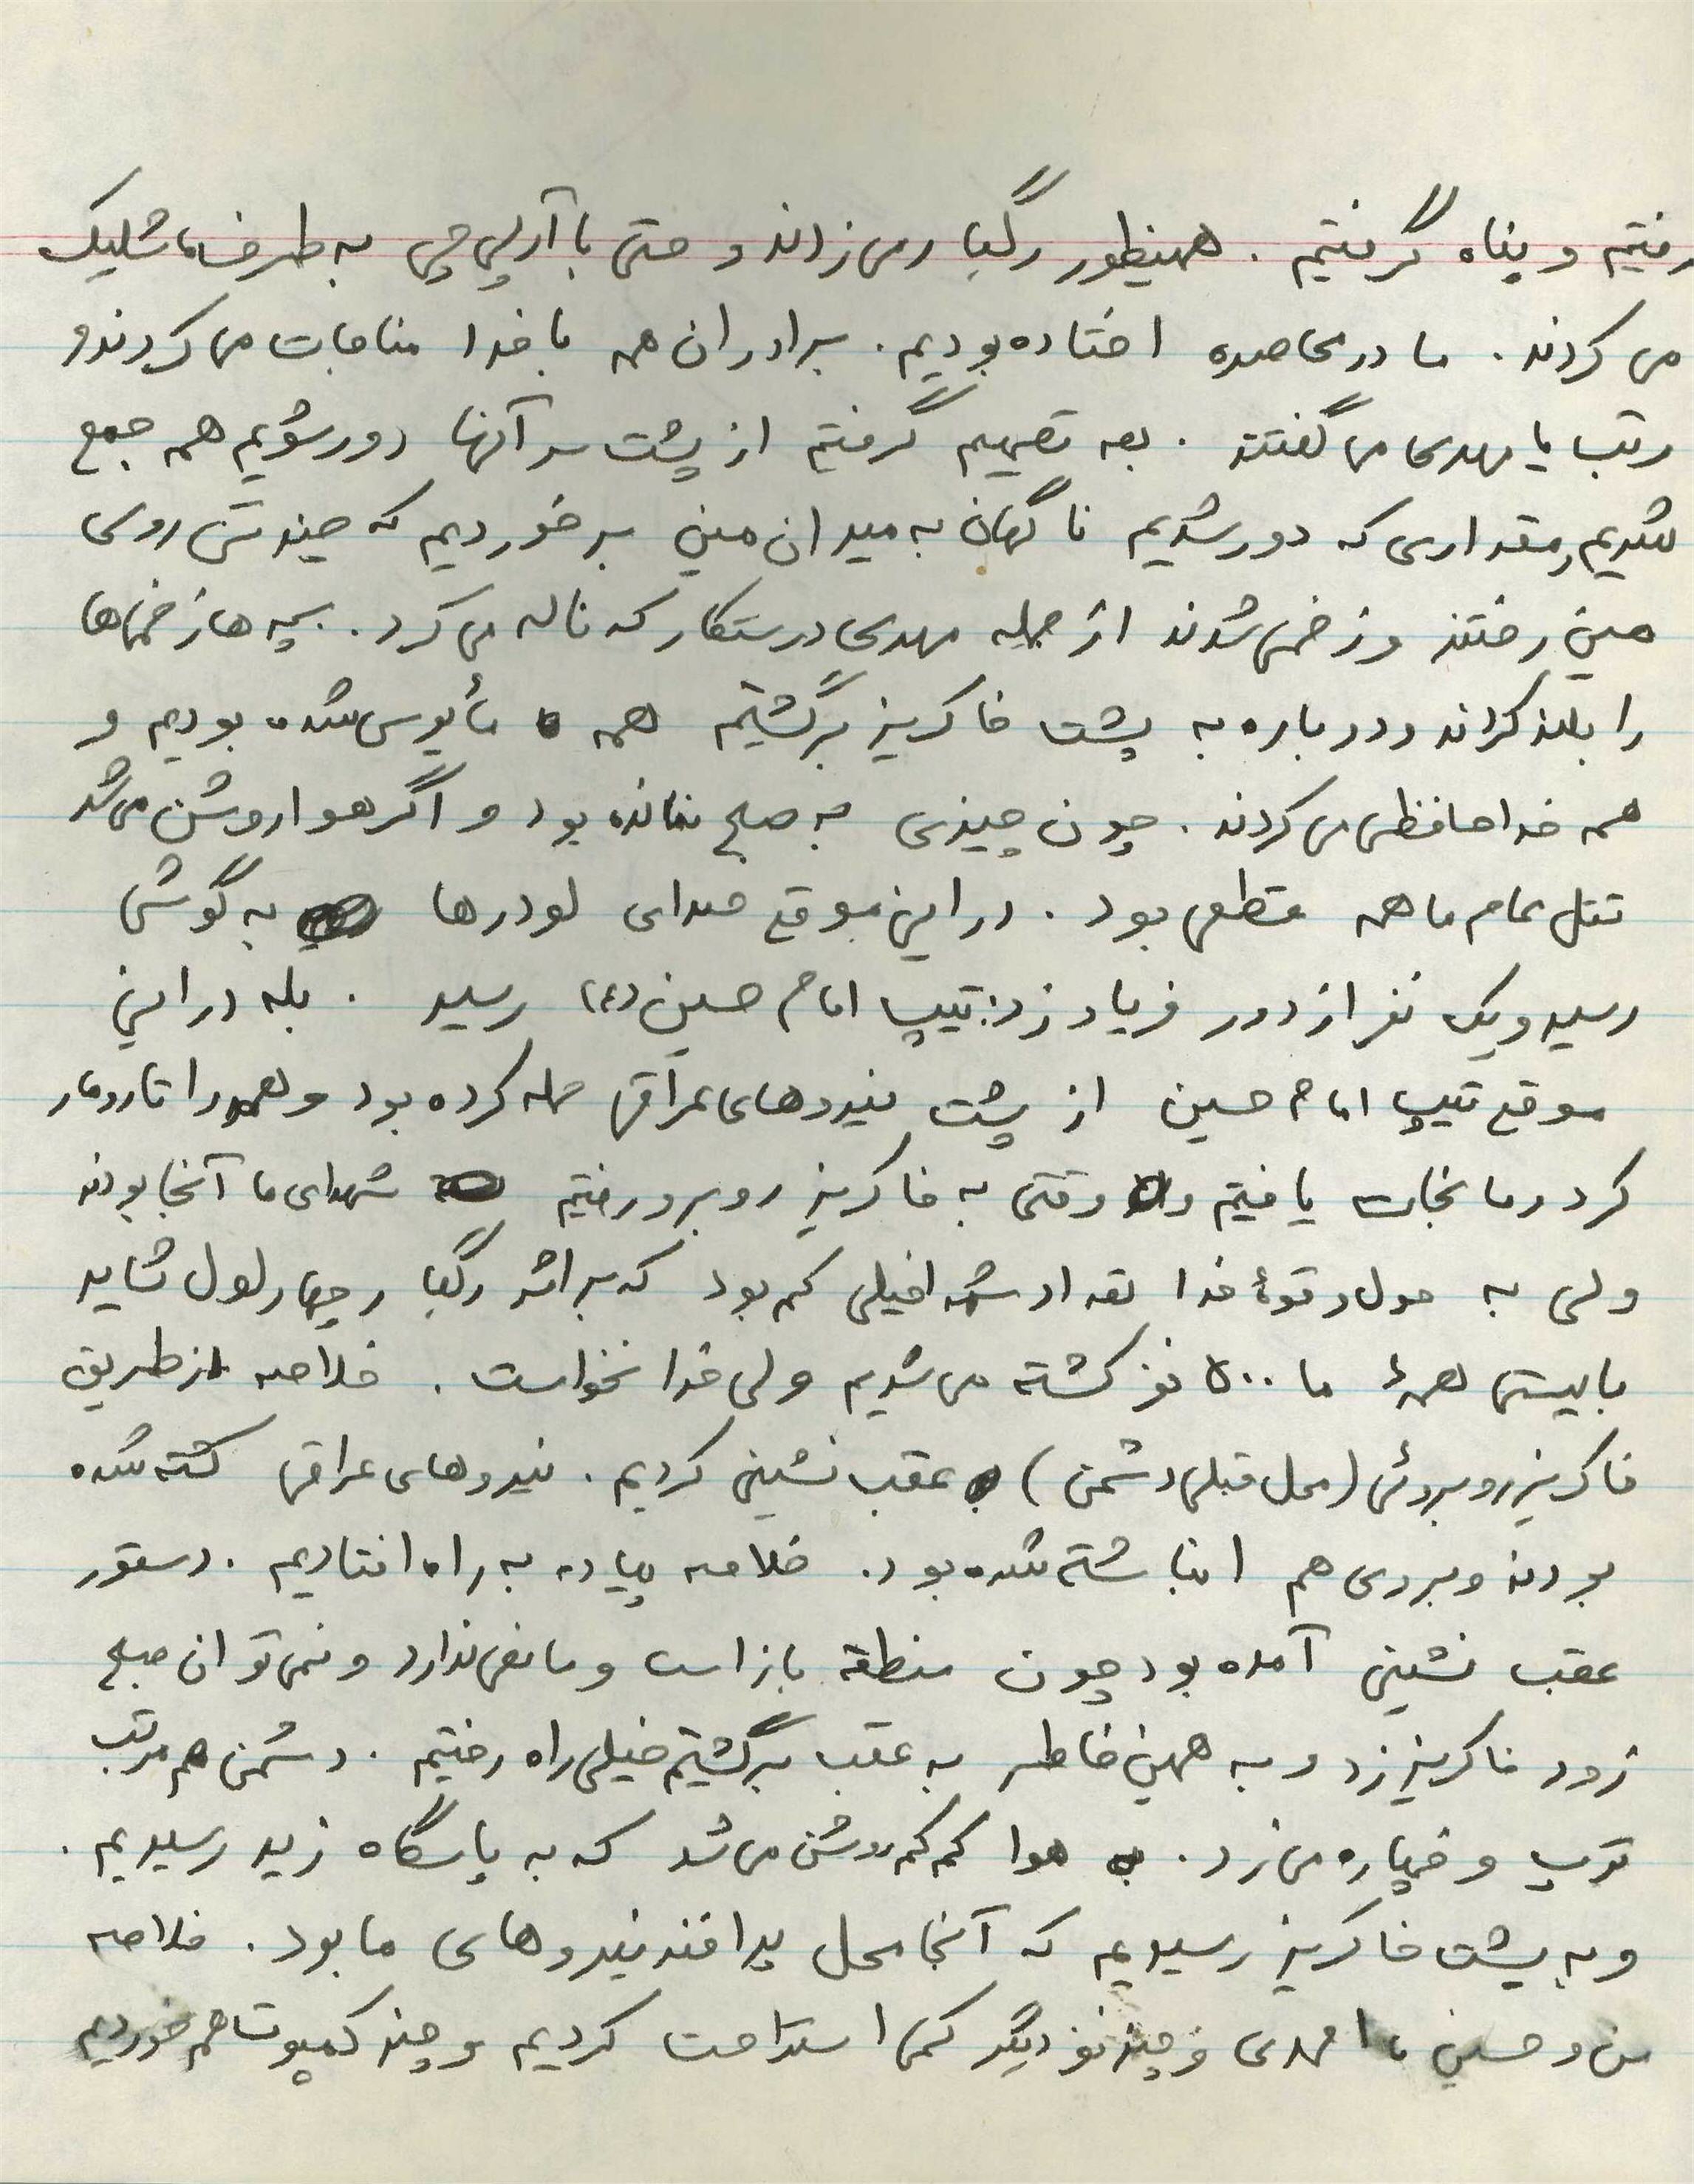 رفتیم و پناه گرفتیم . همینطور رگبار می زدند و حتی با آرپی جی به طرف ما شلیک
می کردند . ما در محاصره افتاده بودیم . برادران همه با خدا مناجات می کردند و
مرتب یا مهدی می گفتند . بعد تصمیم گرفتیم از پشت سر آنها دور شویم همه جمع
شدیم و مقداری که دور شدیم ناگهان به میدان مین برخوردیم که چند تن روی
مین رفتند و زخمی شدند از جمله مهدی درستکار که ناله می کرد . بچه ها زخمیها
را بلند کردند و دوباره به پشت خاکریز برگشتیم همه مأیوس شده بودیم و
همه خداحافظی می کردند . چون چیزی به صبح نمانده بود و اگر هوا روشن می شد
قتل عام ما همه قطعی بود . در این موقع صدای لودرها به گوش
رسید و یک نفر از دور فریاد زد: تیپ امام حسین (ع) رسید . بله در این
موقع تیپ امام حسین از پشت نیروهای عراقی حمله کرده بود و همه را تارومار
کرد و ما نجات یافتیم و وقتی به خاکریز روبرو رفتیم شهدای ما آنجا بودند
ولی به حول و قوۀ خدا تعداد شهدا خیلی کم بود که بر اثر رگبار چهار لول شاید
بایستی همۀ ما ۵۰۰ نفر کشته می شدیم ولی خدا نخواست . خلاصه از طریق
خاکریز روبروئی (محل قبلی دشمن) عقب نشینی کردیم . نیروهای عراقی کشته شده
بودند و بر روی هم انباشته شده بود . خلاصه پیاده به راه افتادیم . دستور
عقب نشینی آمده بود چون منطقه باز است و مانعی ندارد و نمی توان صبح
زود خاکریز زد و به همین خاطر به عقب برگشتیم خیلی راه رفتیم . دشمن هم مرتب
توپ و خمپاره می زد . هوا کم کم روشن می شد که به پاسگاه زید رسیدیم .
و به پشت خاکریز رسیدیم که آنجا محل پدافند نیروهای ما بود . خلاصه
من و حسین و چند نفر دیگر کمی استراحت کردیم و چند کمپوت هم خوردیم